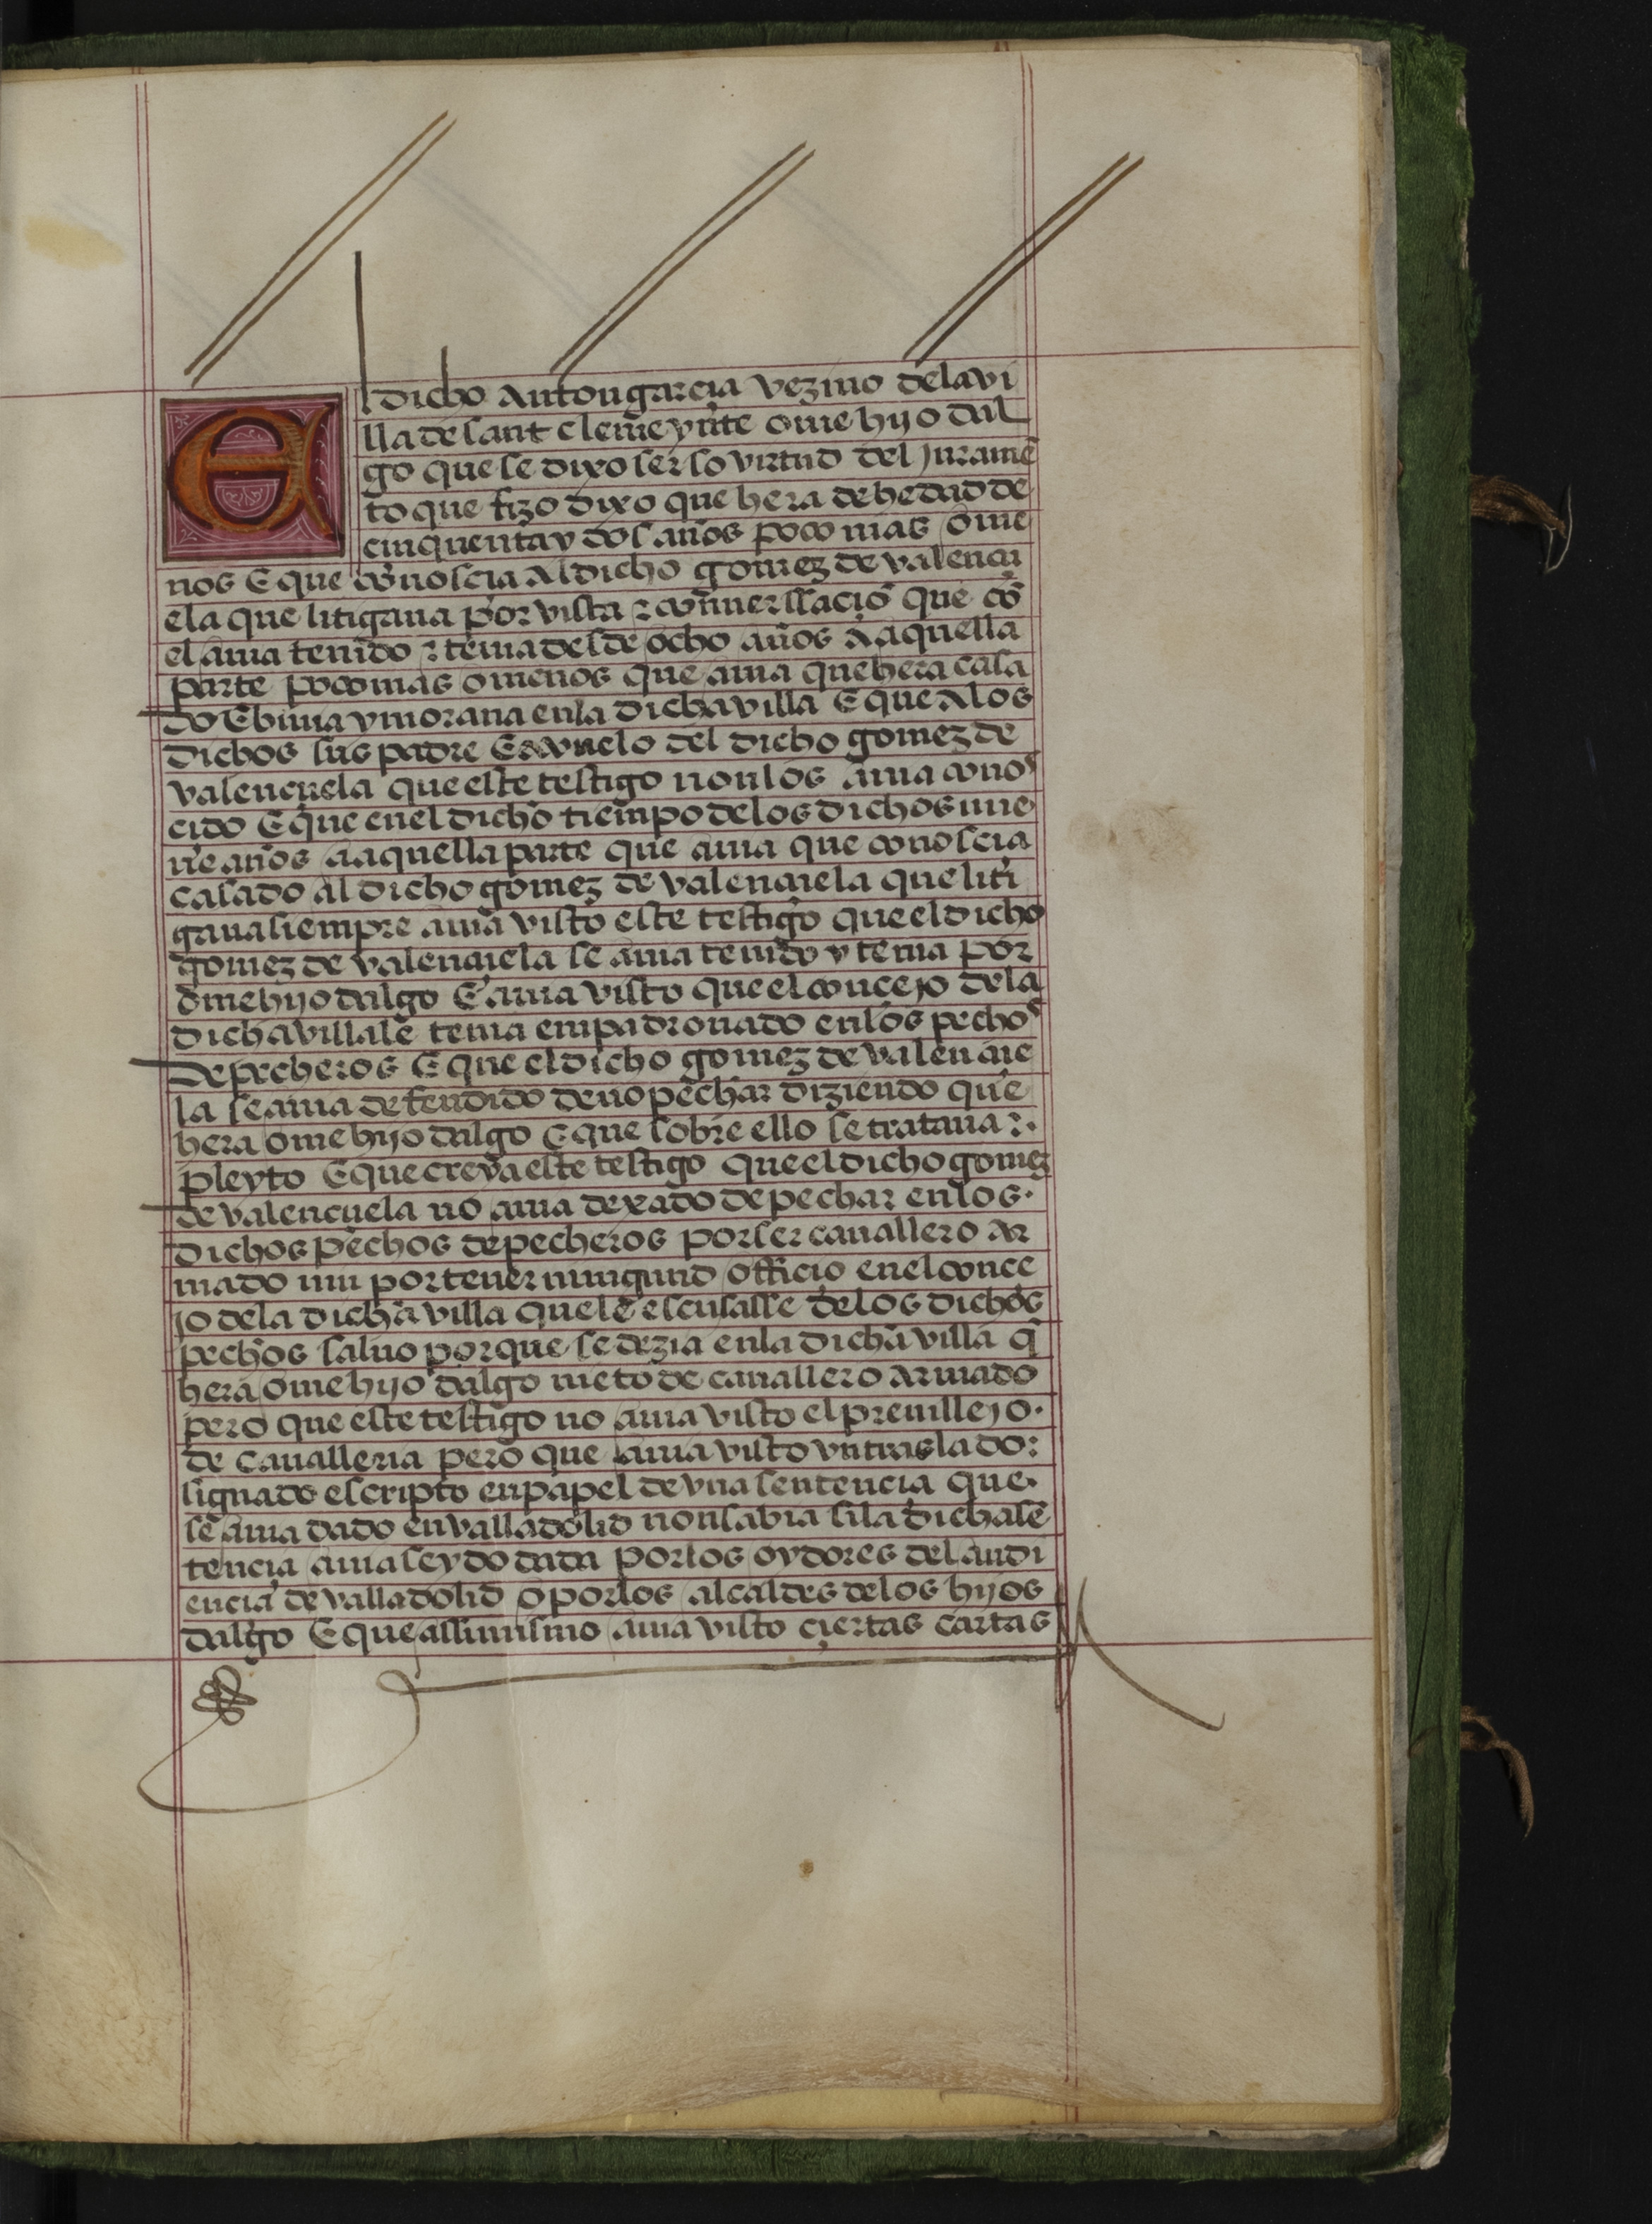 El dicho Anton garcia vezino dela vi
lla de sant clemeynte ome hijo dal
go que se dixo ser so virtud del juramē
to que fizo dixo que hera de hedad de
cinquenta y dos años poco mas o me
nos E que conoscia Al dicho gomez de valencu
ela que litigaua por vista ⁊ conuerssaciō que cō
el auia tenido ⁊ tenia desde ocho años A aquella
parte poco mas o menos que auia que hera casa
do E biuia y moraua enla dicha villa E que Alos
dichos sus padre E auuelo del dicho gomez de
valencuela que este testigo non los auia conos
cido E que enel dicho tiempo delos dichos nue
ue años a aquella parte que auia que conoscia
casado al dicho gomez de valencuela que liti
gaua siempre auia visto este testigo que el dicho
gomez de valencuela se auia tenido y tenia por
ome hijo dalgo E auia visto que el concejo dela
dicha villa le tenia enpadronado enlos pechos
de pecheros E que el dicho gomez de valencue
la se auia defendido de no pechar diziendo que
hera ome hijo dalgo E que sobre ello se trataua ⁊.
pleyto E que creya este testigo que el dicho gomez
de valencuela no auia dexado de pechar enlos.
dichos pechos de pecheros por ser cauallero Ar
mado nin por tener ningund officio enel conce
jo dela dicha villa que le escusasse delos dichos
pechos saluo por que se dezia enla dicha villa q̄
hera ome hijo dalgo nieto de cauallero Armado
pero que este testigo no auia visto el preuillejo.
de caualleria pero que auia visto vn traslado:
signado escripto en papel de vna sentencia que.
se auia dado en valladolid non sabia si la dicha sē
tencia auia seydo dada por los oydores del audi
encia de valladolid o por los alcaldes delos hijos
dalgo E que assimismo auia visto ciertas cartas